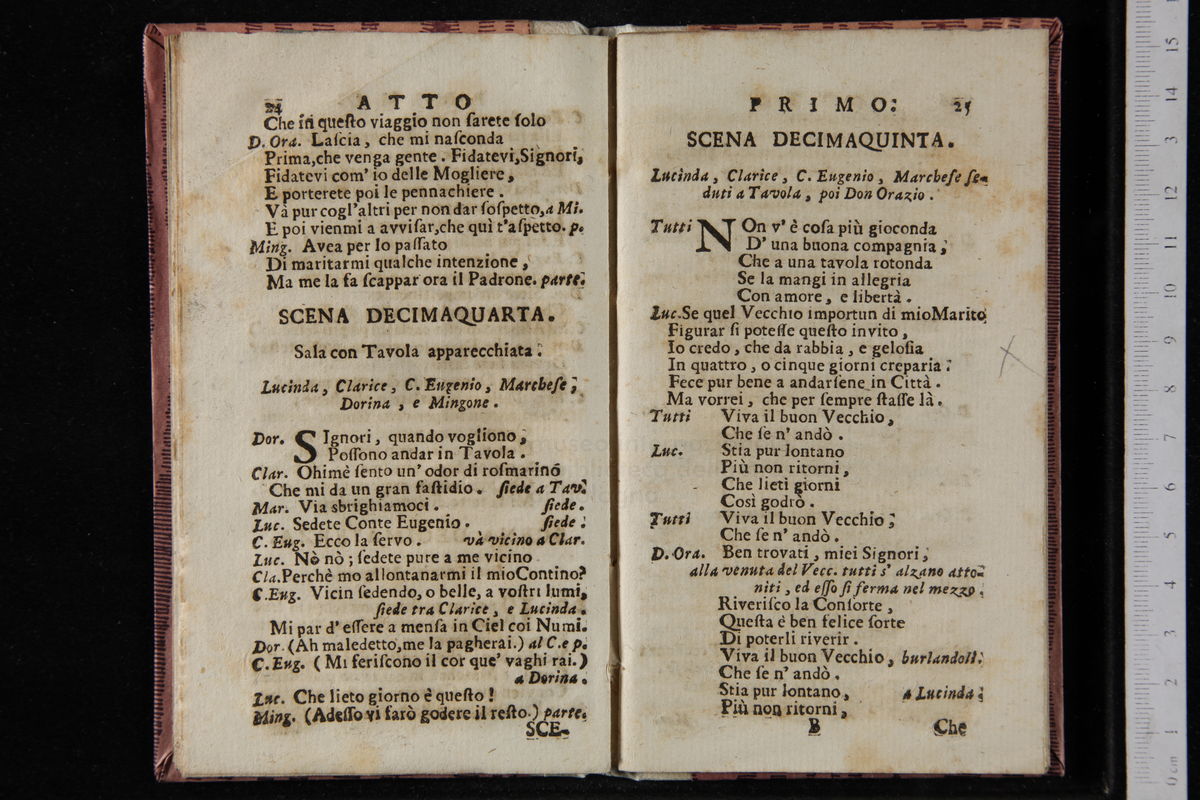 24 ATTO
Che in queſto viaggio non ſarete ſolo
D. Ora. Laſcia, che mi naſconda
Prima, che venga gente. Fidatevi, Signori,
Fidatevi com' io delle Mogliere,
E porterete poi le pennachiere.
Và pur cogl'altri per non dar ſoſpetto, a Mi.
E poi vienmi a avviſar, che quì t'aſpetto. p.
Ming. Avea per lo paſſato
Di maritarmi qualche intenzione,
Ma me la fa ſcappar ora il Padrone. parte.
SCENA DECIMAQUARTA.
Sala con Tavola apparecchiata.
Lucinda, Clarice, C. Eugenio, Marcheſe,
Dorina, e Mingone.
Dor. SIgnori, quando vogliono,
Poſſono andar in Tavola.
Clar. Ohimè ſento un' odor di roſmarino
Che mi da un gran faſtidio. ſiede a Tav.
Mar. Via sbrighiamoci. ſiede.
Luc. Sedete Conte Eugenio. ſiede.
C. Eug. Ecco la ſervo. và vicino a Clar.
Luc. Nò nò; ſedete pure a me vicino
Cla. Perchè mo allontanarmi il mio Contino?
C. Eug. Vicin ſedendo, o belle, a voſtri lumi,
ſiede tra Clarice, e Lucinda.
Mi par d' eſſere a menſa in Ciel coi Numi.
Dor. (Ah maledetto, me la pagherai.) al C. e p.
C. Eug. (Mi feriſcono il cor que' vaghi rai.)
a Dorina.
Luc. Che lieto giorno è queſto!
Ming. (Adeſſo vi farò godere il reſto.) parte.
SCE-
PRIMO. 25
SCENA DECIMAQUINTA.
Lucinda, Clarice, C. Eugenio, Marcheſe ſe-
duti a Tavola, poi Don Orazio.
Tutti NOn v' è coſa più gioconda
D' una buona compagnia,
Che a una tavola rotonda
Se la mangi in allegria
Con amore, e libertà.
Luc. Se quel Vecchio importun di mio Marito
Figurar ſi poteſſe queſto invito,
Io credo, che da rabbia, e geloſia
In quattro, o cinque giorni creparia.
Fece pur bene a andarſene in Città.
Ma vorrei, che per ſempre ſtaſſe là.
Tutti Viva il buon Vecchio,
Che ſe n' andò.
Luc. Stia pur lontano
Più non ritorni,
Che lieti giorni
Così godrò.
Tutti Viva il buon Vecchio;
Che ſe n' andò.
D. Ora. Ben trovati, miei Signori,
alla venuta del Vecc. tutti s' alzano atto-
niti, ed eſſo ſi ferma nel mezzo.
Riveriſco la Conſorte,
Queſta è ben felice ſorte
Di poterli riverir.
Viva il buon Vecchio, burlandoli.
Che ſe n' andò.
Stia pur lontano, a Lucinda.
Più non ritorni,
B Che